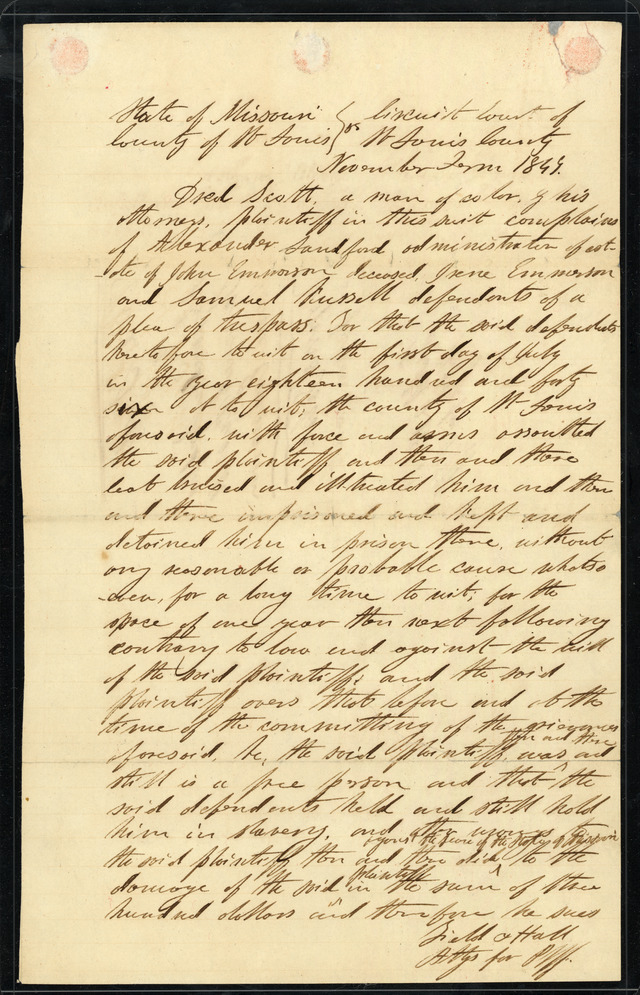 State of Missouri } ss Circuit Court of
County of St Louis } St Louis County
November Term 1847.
Dred Scott, a man of color, by his
attorneys, plaintiff in this suit complains
of Alexander Sandford administrator of est-
-ate of John Emmerson deceased, Irene Emmerson
and Samuel Russell defendants of a
plea of trespass. For that the said defendants
heretofore to wit on the first day of July
in the year eighteen hundred and forty
six at to wit, the county of St Louis
aforesaid, with force and arms assaulted
the said plaintiff and then and there
beat bruised and illtreated him and then
and there imprisoned and kept and
detained him in prison there, without
any reasonable or probable cause whatso
-ever, for a long time to wit, for the
space of one year then next following
contrary to law and against the will
of the said plaintiff; and the said
plaintiff avers that before and at the
time of the committing of the grievances
aforesaid, he, the said plaintiff, then and there was and
still is a free person and that the
said defendants held and still hold
him in slavery, and other wrongs to
the said plaintiff then and there did against the peace of the State of Missouri to the
damage of the said plaintiff in the sum of three
hundred dollars and therefore he sues
Field & Hall
Attys for Plff.